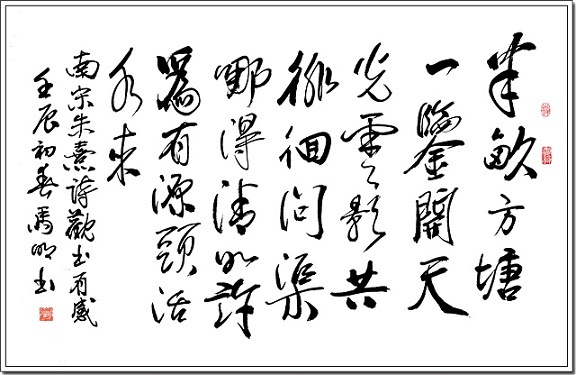 半畝方塘
一鑒開天
光雲影共
徘徊問渠
那得清如許
為有源頭活
水来
南宋朱熹詩觀书有感
壬辰初春馬明书